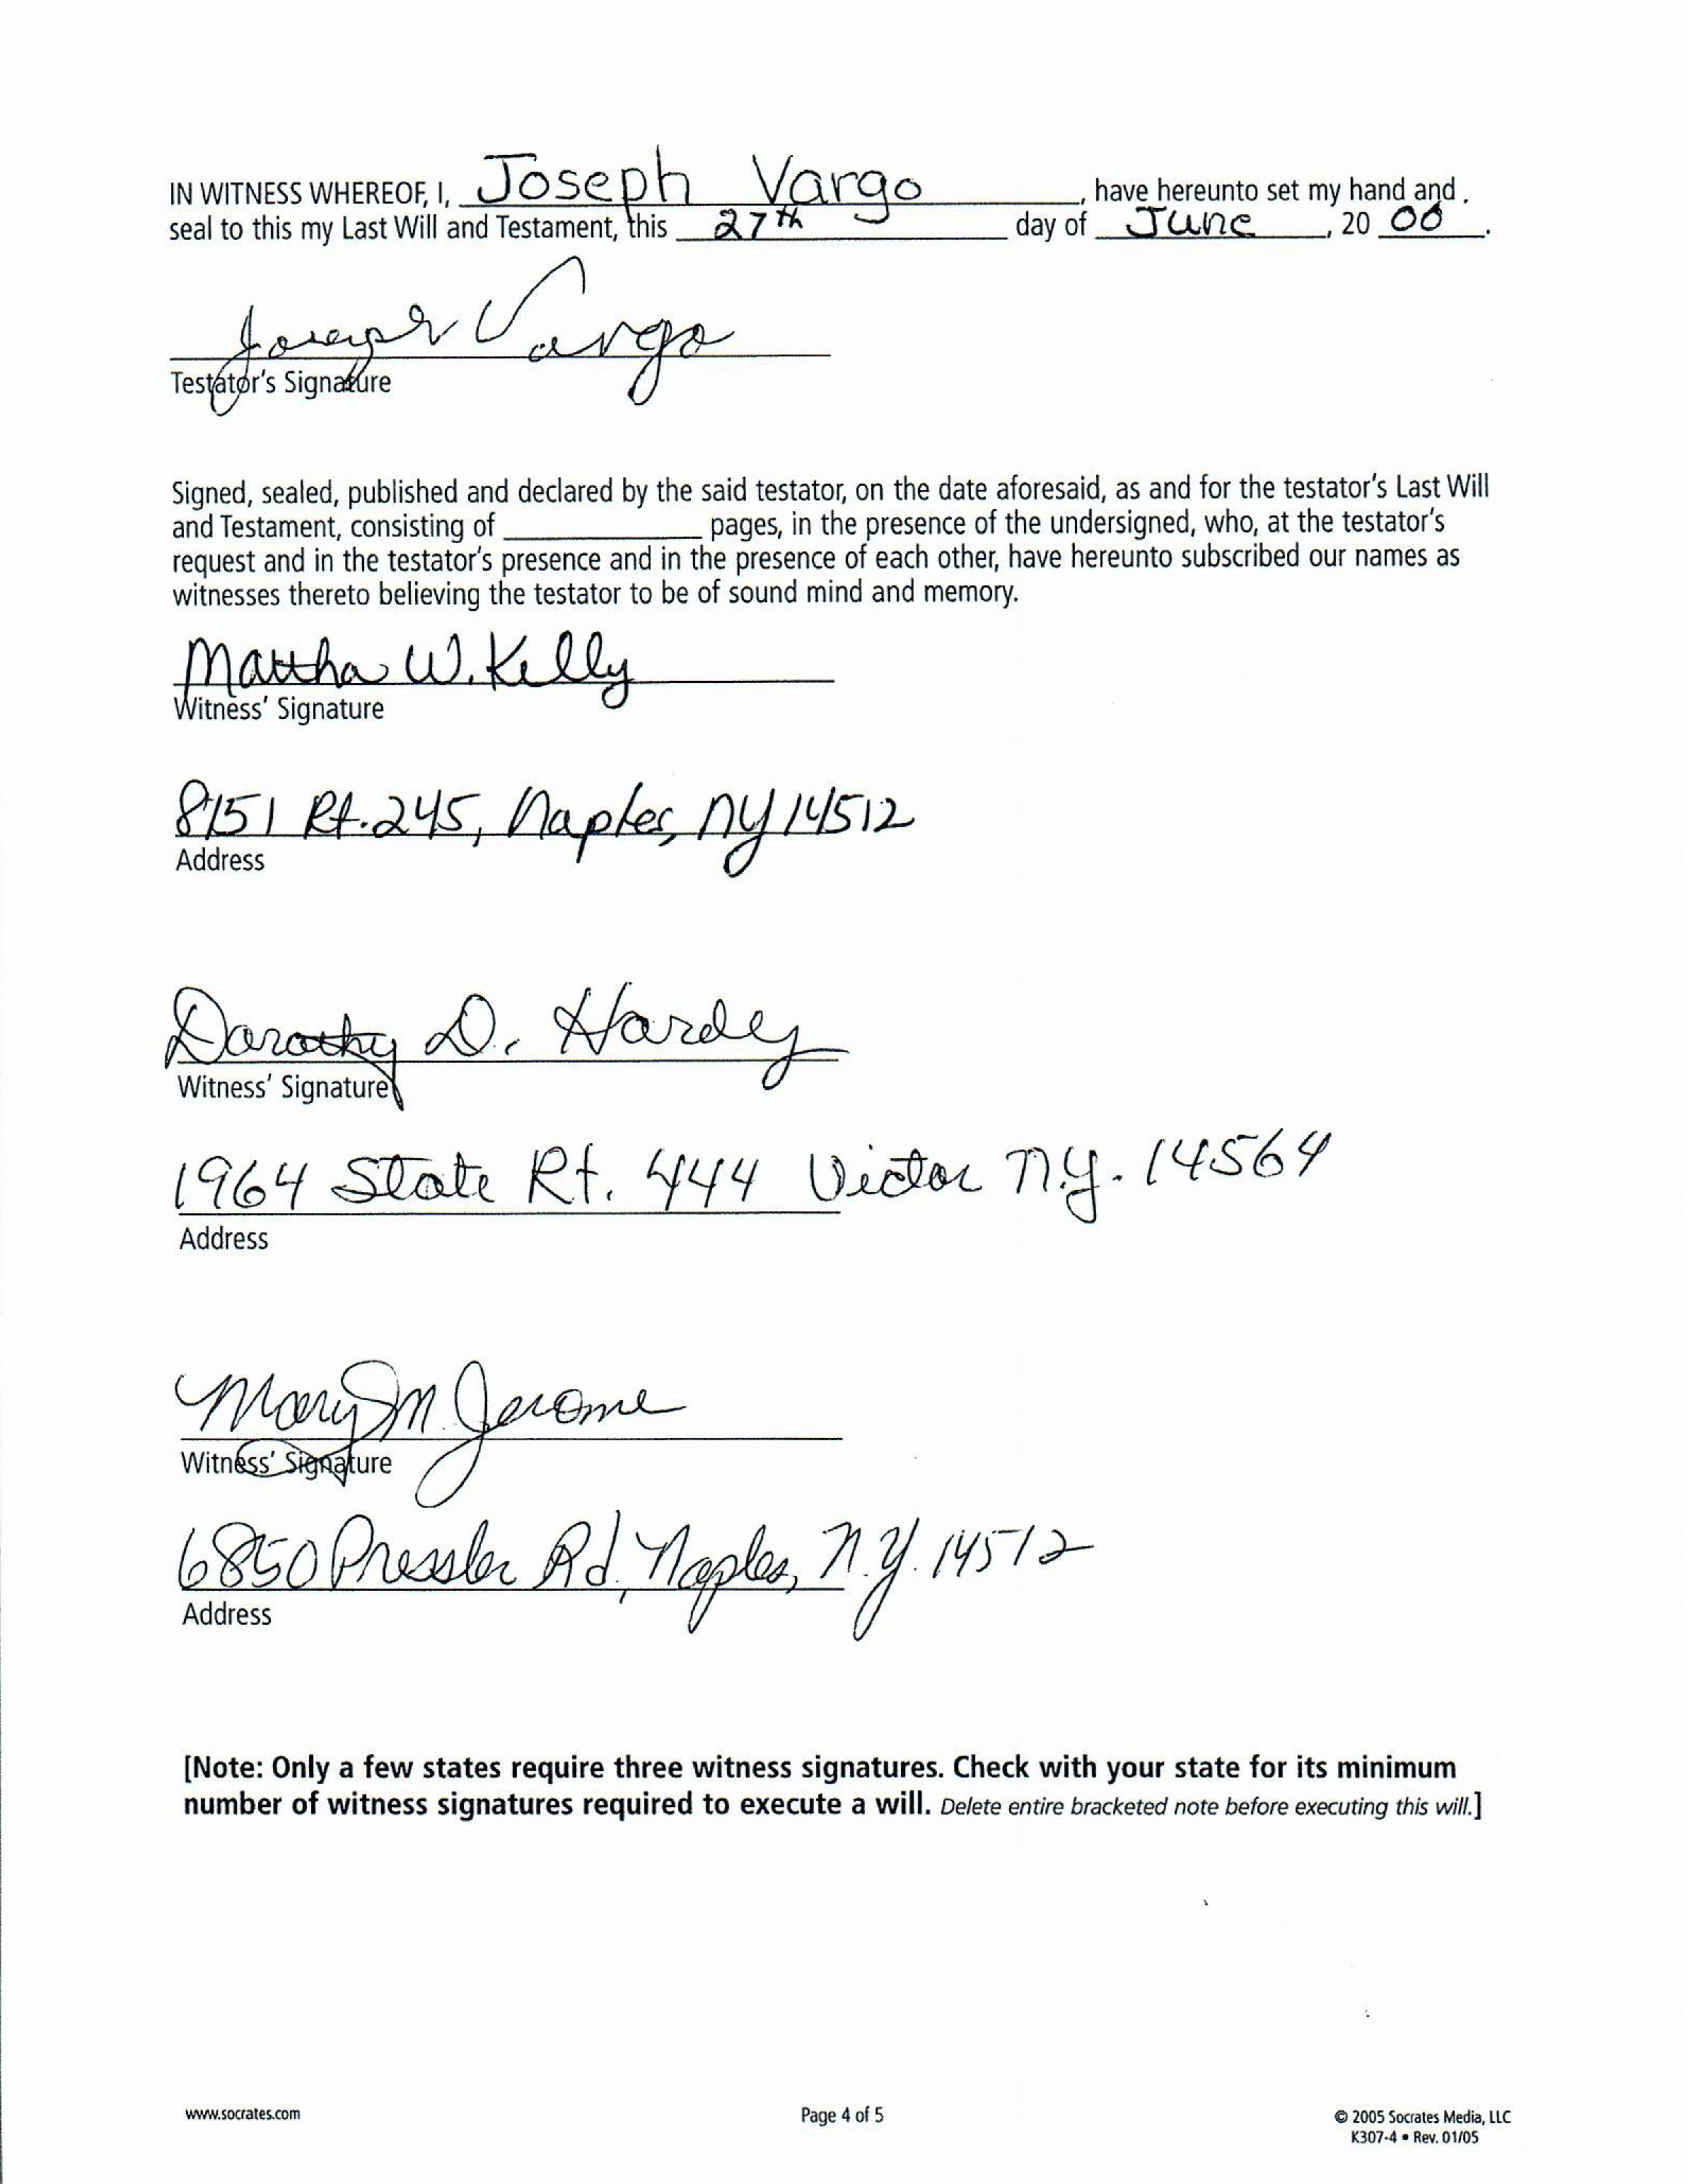 IN WITNESS WHEREOF, I, Joseph Vargo, have hereunto set my hand and.
seal to this my Last Will and Testament, this 27th day of June, 20 06.
Joseph Vargo
Testator's Signature
Signed, sealed, published and declared by the said testator, on the date aforesaid, as and for the testator's Last Will
and Testament, consisting of ____________ pages, in the presence of the undersigned, who, at the testator's
request and in the testator's presence and in the presence of each other, have hereunto subscribed our names as
witnesses thereto believing the testator to be of sound mind and memory.
Martha W. Kelly
Witness' Signature
8151 Rt. 245, Naples, NY 14512
Address
Dorothy D. Hardy
Witness' Signature
1964 State Rt. 444 Victor N.Y. 14564
Address
Mary M Jerome
Witness' Signature
6850 Pressler Rd, Naples, N.Y. 14512
Address
[Note: Only a few states require three witness signatures. Check with your state for its minimum
number of witness signatures required to execute a will. Delete entire bracketed note before executing this will.]
www.socrates.com
Page 4 of 5
© 2005 Socrates Media, LLC
K307-4 • Rev. 01/05